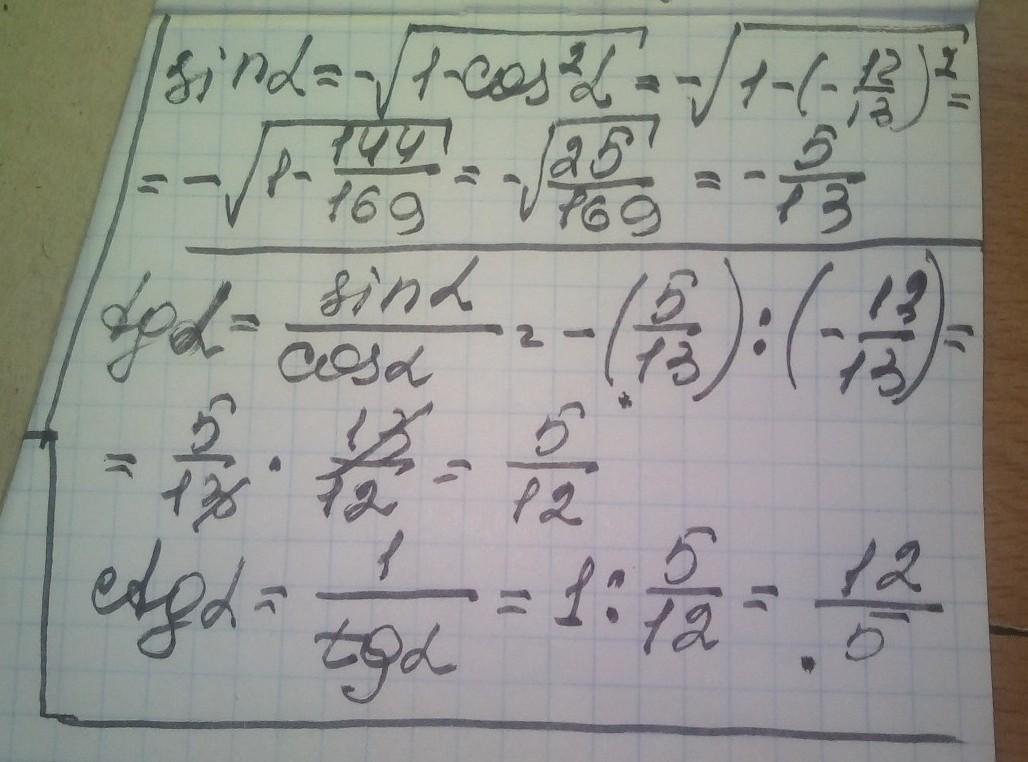 sinα = -√(1-cos²α) = -√(1-(-12/13)²) =
= -√(1-144/169) = -√(25/169) = -5/13
tgα = sinα/cosα = -(5/13) : (-12/13) =
= 5/13 · 13/12 = 5/12
ctgα = 1/tgα = 1 : 5/12 = 12/5